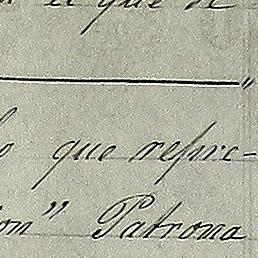 que se
"
que repre-
ion" Patrona